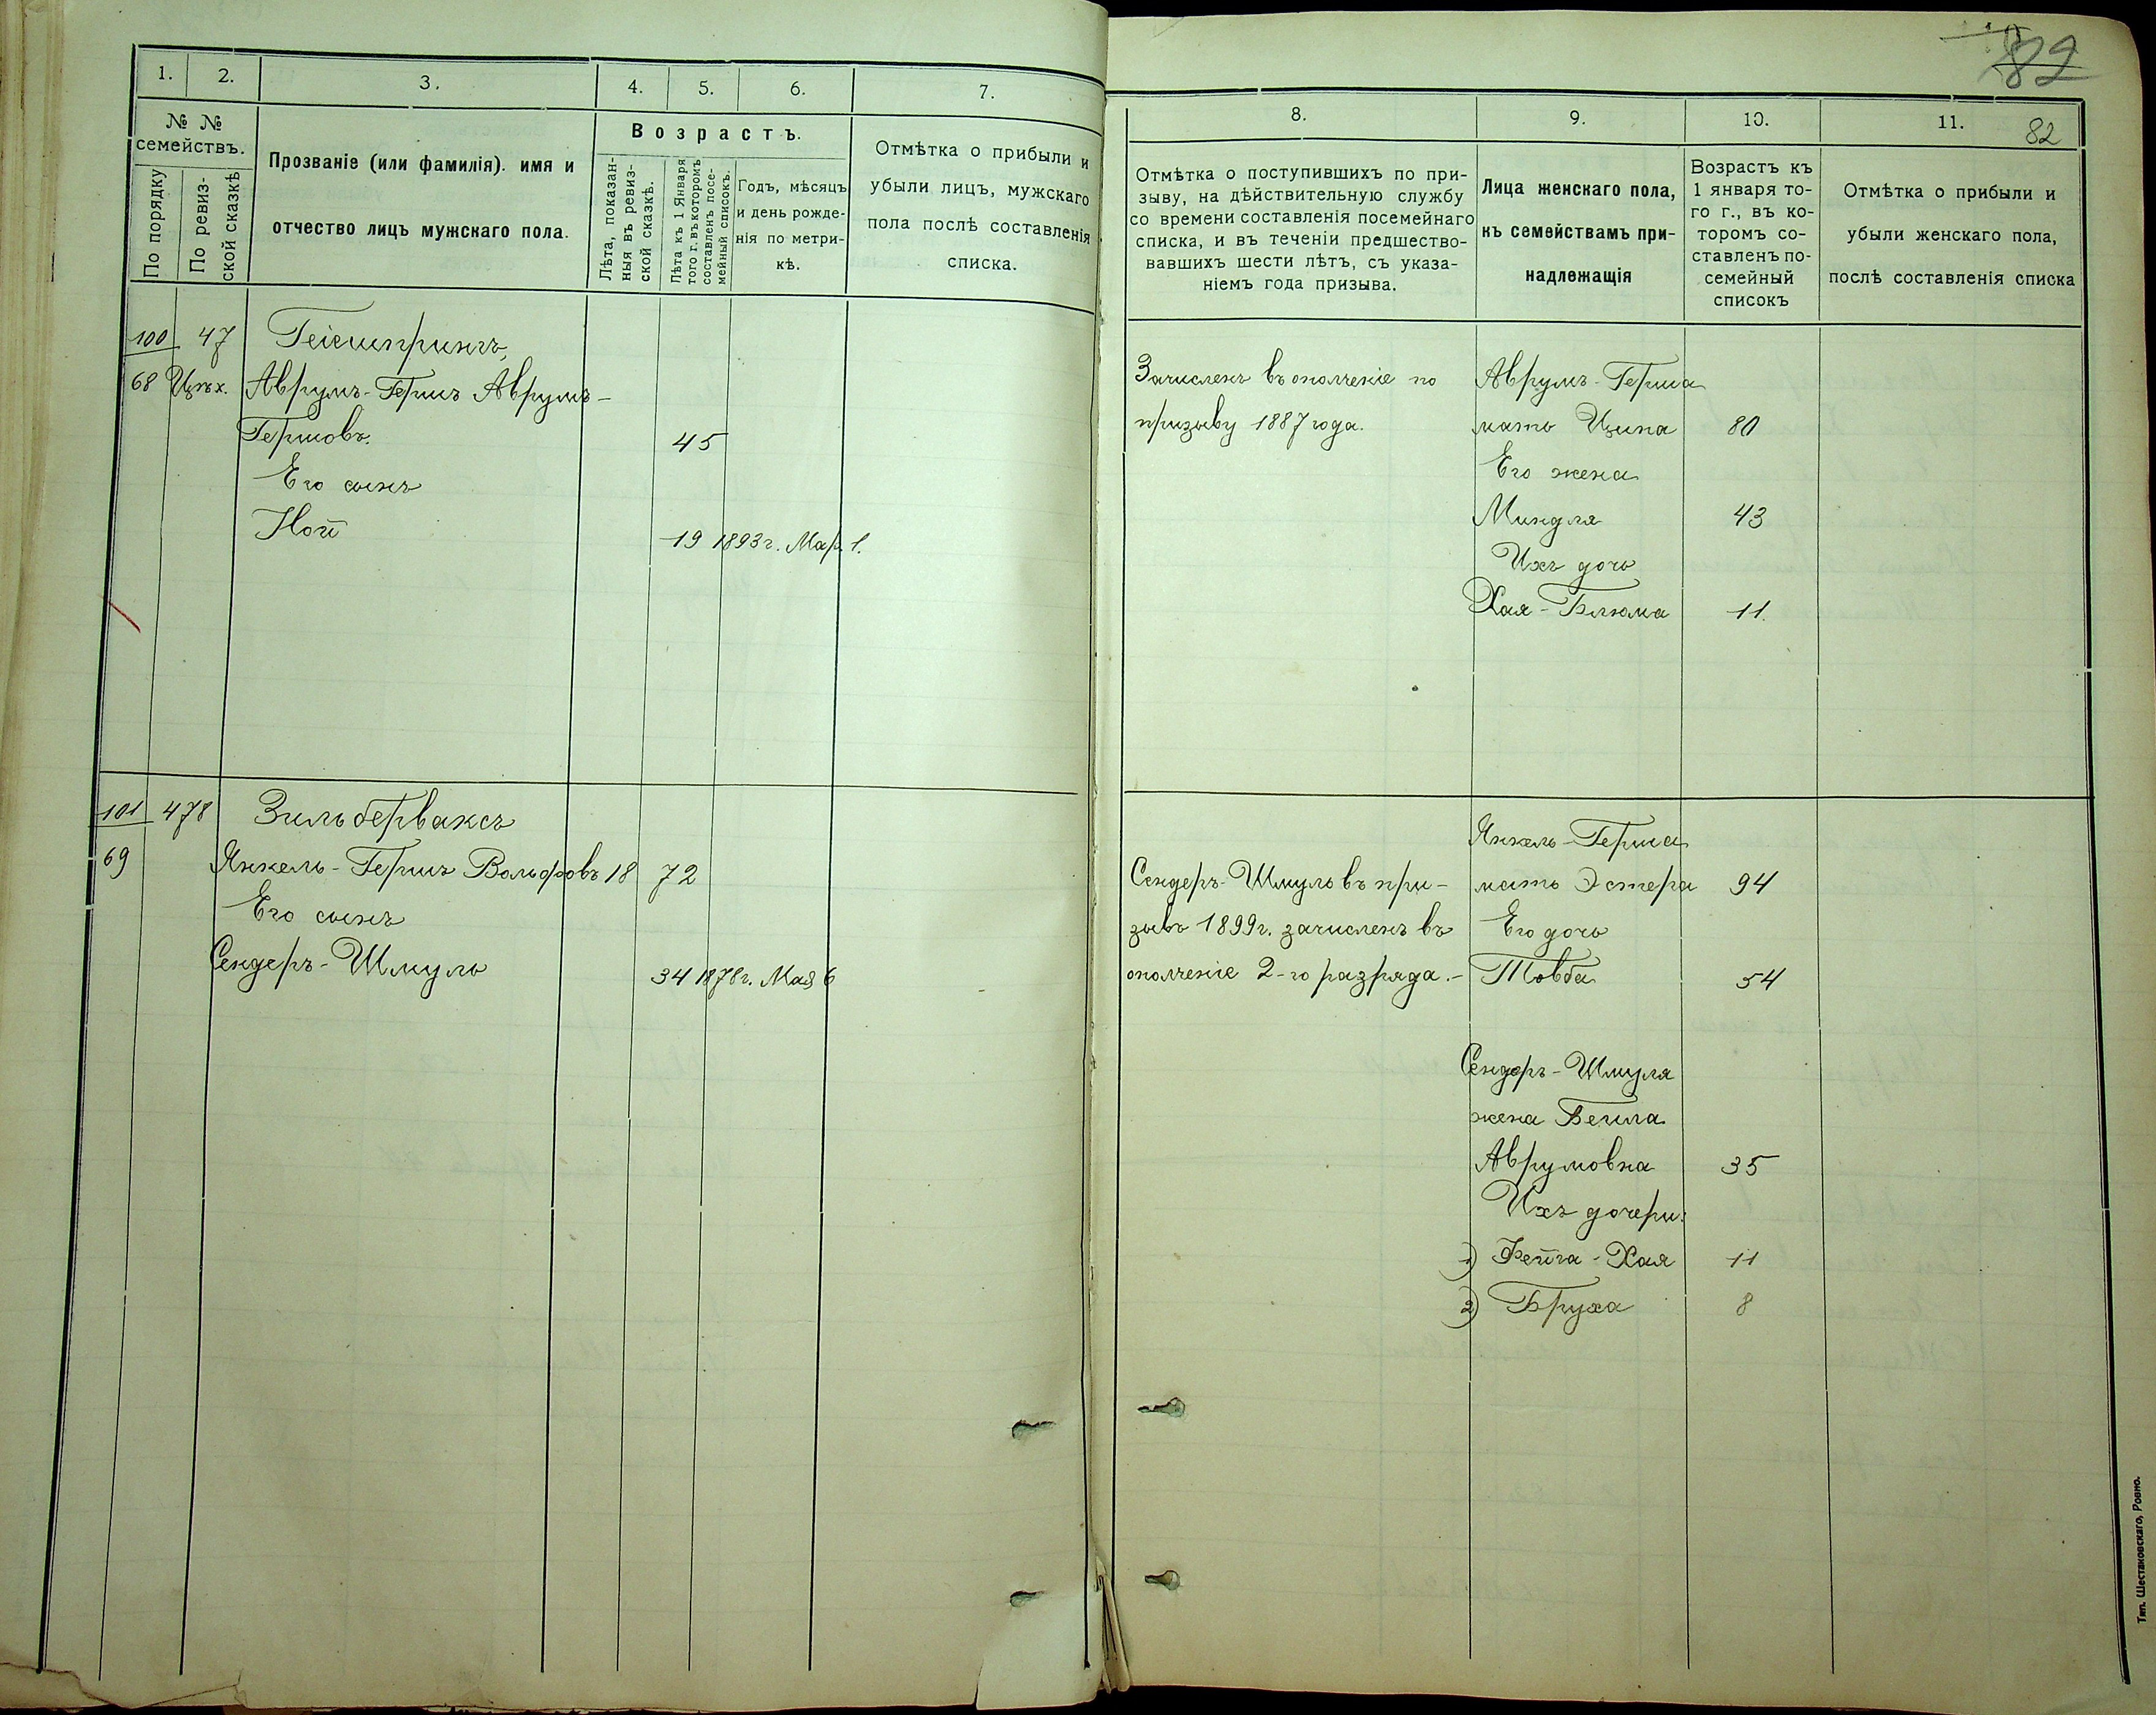 1. 2. 3. 4. 5. 6. 7.
№ №
семействъ.
По порядку
По ревиз-
ской сказкѣ
Прозваніе (или фамилія). имя и
отчество лицъ мужскаго пола.
Возрастъ.
Лѣта, показан-
ныя въ ревиз-
ской сказкѣ.
Лѣта къ 1 Января
того г. въ которомъ
составленъ посе-
мейный списокъ.
Годъ, мѣсяцъ
и день рожде-
нія по метри-
кѣ.
Отмѣтка о прибыли и
убыли лицъ, мужскаго
пола послѣ составленія
списка.
100 47
68 Цех.
Аврумъ-Гершъ Аврумъ-
Гершовъ. 45
Его сынъ
Ной 19 1893г. Мар. 1.
101 478 Зильбервaксъ
69 Янкель-Гершъ Вольфовъ 18 72
Его сынъ
Сендеръ-Шмуль 34 1878г. Мая 6
82
8. 9. 10. 11.
82
Отмѣтка о поступившихъ по при-
зыву, на дѣйствительную службу
со времени составленія посемейнаго
списка, и въ теченіи предшество-
вавшихъ шести лѣтъ, съ указа-
ніемъ года призыва.
Лица женскаго пола,
къ семействамъ при-
надлежащія
Возрастъ къ
1 января то-
го г., въ ко-
торомъ со-
ставленъ по-
семейный
списокъ
Отмѣтка о прибыли и
убыли женскаго пола,
послѣ составленія списка
Зачисленъ въ ополченіе по
призыву 1887 года.
Аврумъ-Герша
мать Ципа 80
Его жена
Миндля 43
Ихъ дочь
Хая-Блюма 11.
Сендеръ-Шмуль въ при-
зывъ 1899г. зачисленъ въ
ополченіе 2-го разряда.-
Янкель-Герша
мать Эстера 94
Его дочь
Товба 54
Сендеръ-Шмуля
жена Бейла
Аврумовна 35
Ихъ дочери:
1) Фейга-Хая 11
2) Бруха 8
Тип. Шестаковскаго, Ровно.